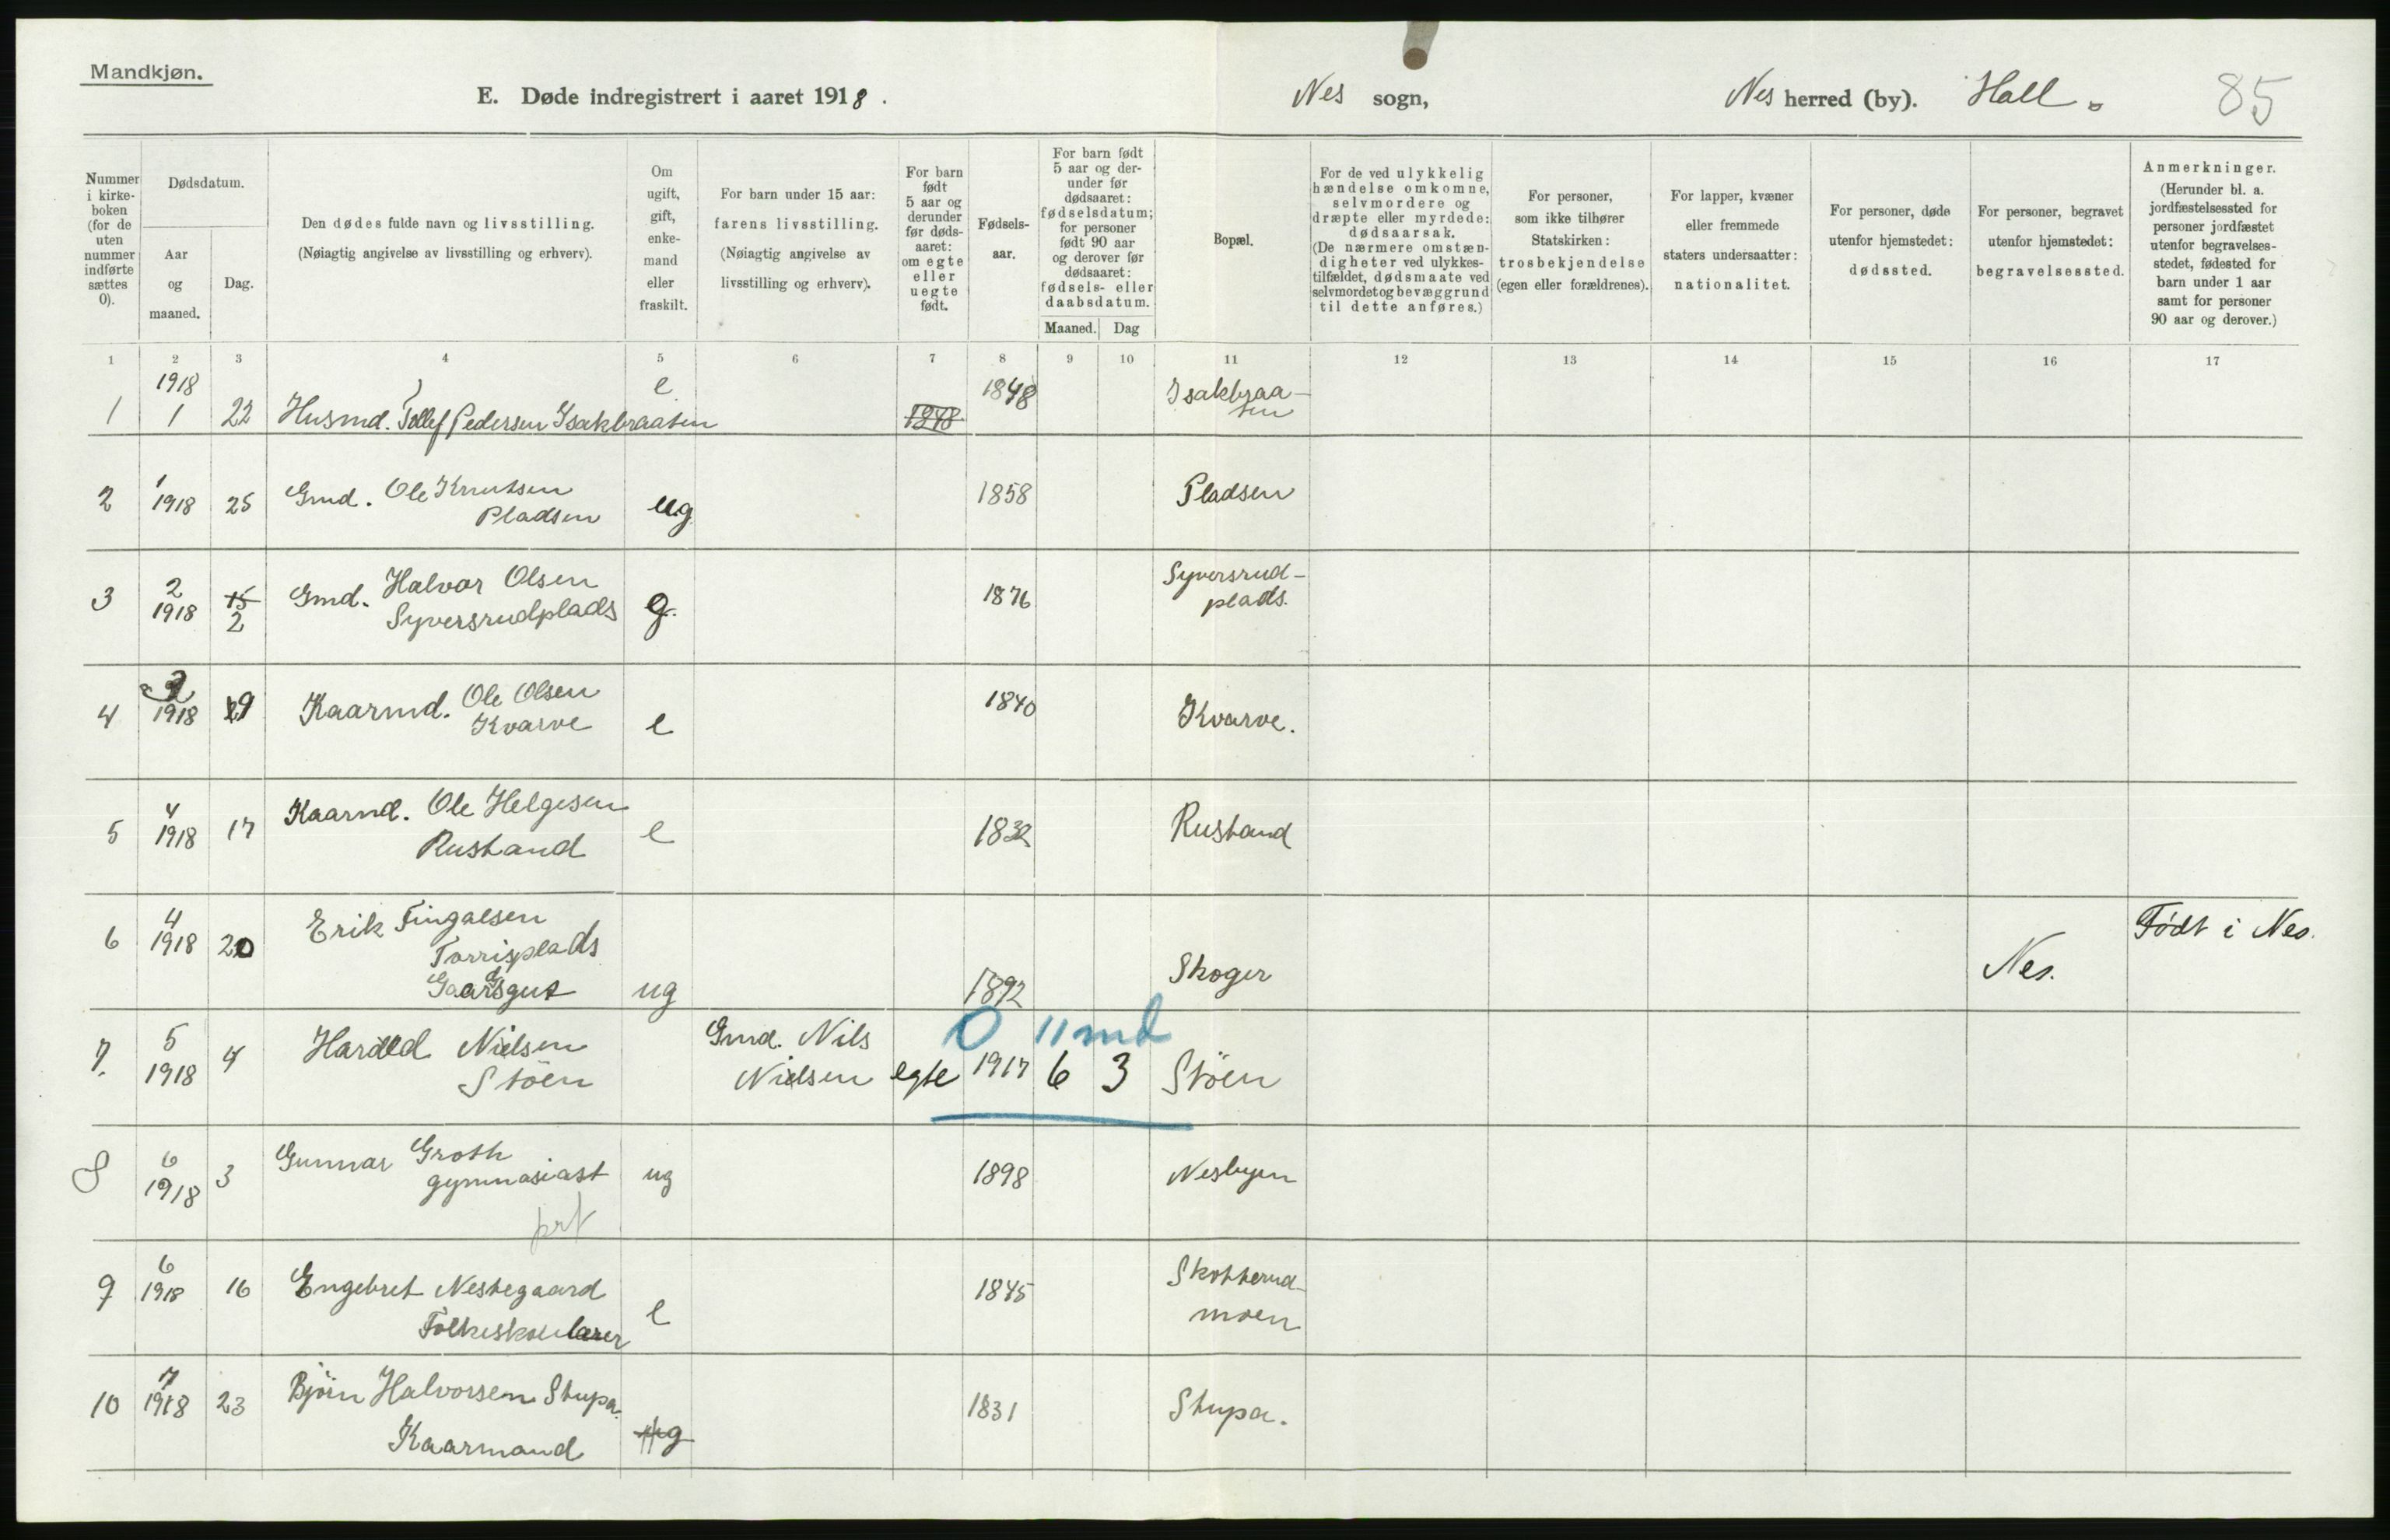 Mandkjøn.
E. Døde indregistrert i aaret 1918.
Nes sogn,
Nes herred (by). Hall.
85
Nummer i kirke-boken (for de uten nummer indførte sættes 0).
Dødsdatum.
Aar og maaned.
Dag.
Den dødes fulde navn og livsstilling.
(Nøiagtig angivelse av livsstilling og erhverv).
Om ugift, gift, enke-mand eller fraskilt.
For barn under 15 aar: farens livsstilling.
(Nøiagtig angivelse av livsstilling og erhverv).
For barn født 5 aar og derunder før døds-aaret: om egte eller uegte født.
Fødsels-aar.
For barn født 5 aar og der-under før dødsaaret: fødselsdatum; for personer født 90 aar og derover før dødsaaret: fødsels- eller daabsdatum.
Maaned. Dag
Bopæl.
For de ved ulykkelig hændelse omkomne, selvmordere og dræpte eller myrdede: dødsaarsak.
(De nærmere omstæn-digheter ved ulykkes-tilfældet, dødsmaate ved selvmordet og bevæggrund til dette anføres.)
For personer, som ikke tilhører Statskirken: trosbekjendelse (egen eller forældrenes).
For lapper, kvæner eller fremmede staters undersaatter: nationalitet.
For personer, døde utenfor hjemstedet: dødssted.
For personer, begravet utenfor hjemstedet: begravelsessted.
Anmerkninger.
(Herunder bl. a. jordfæstelsessted for personer jordfæstet utenfor begravelses-stedet, fødested for barn under 1 aar samt for personer 90 aar og derover.)
1 2 3 4 5 6 7 8 9 10 11 12 13 14 15 16 17
1 1918 1 22 Husmd. Tollef Pedersen Isakbraaten e 1848 1848 Isakbraa-ten
2 1 1918 25 Gmd. Ole Knutsen Pladsen ug 1858 Pladsen
3 2 1918 15 2 Gmd. Halvor Olsen Syversrudplads g. 1876 Syversrud-plads.
4 2 1918 19 Kaarmd. Ole Olsen Kvarve e 1840 Kvarve.
5 4 1918 17 Kaarmd. Ole Helgesen Rustand e 1832 Rustand
6 4 1918 20 Erik Fingalsen Torrisplads Gaardsgut ug 1892 Skoger Nes. Født i Nes.
7. 5 1918 4 Harald Nielsen Støen Gmd. Nils Nielsen egte 1917 6 3 Støen
0 11 md
8 6 1918 3 Gunnar Groth gymnasiast ug 1898 Nesbyen
prt
9 6 1918 16 Engebret Nestegaard Folkeskolelærer e 1845 Skotterud-moen
10 7 1918 23 Bjørn Halvorsen Stupa. Kaarmand g 1831 Stupa.